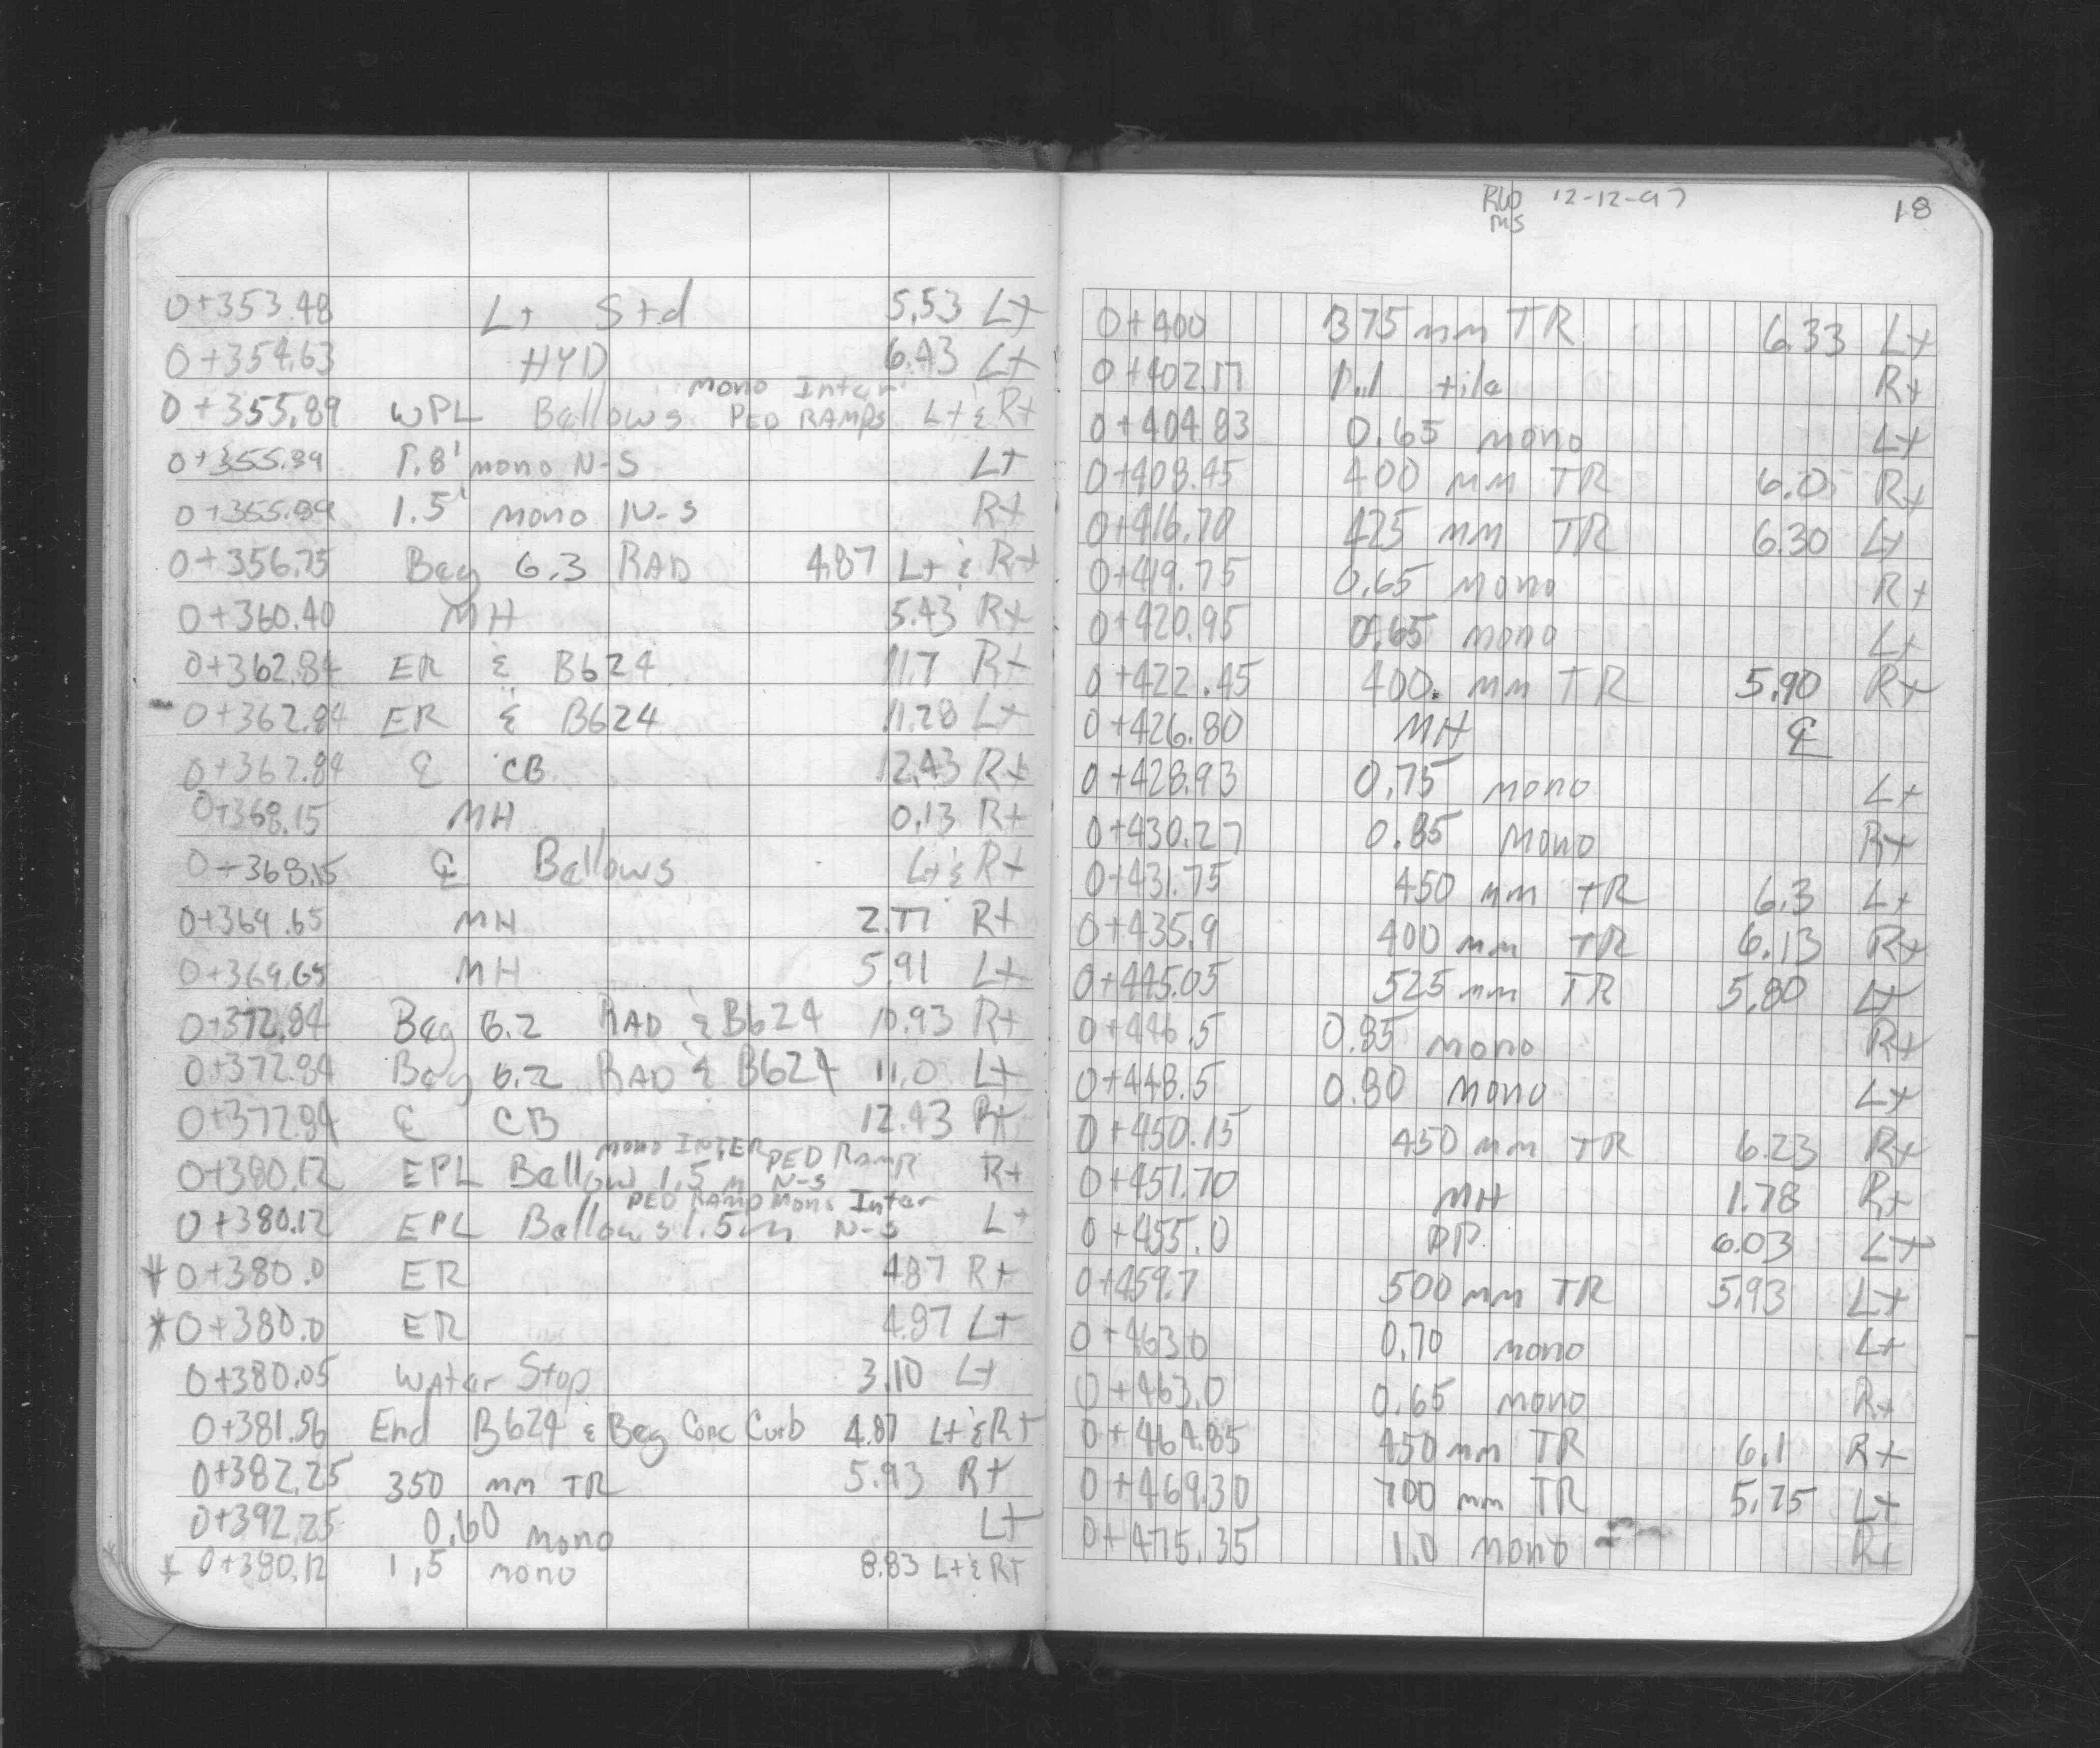 0+353.48 Lt Std 5.53 Lt
0+354.63 HYD 6.43 Lt
Mono Inter
0+355.89 WPL Bellows PED RAMPS Lt & Rt
0+355.89 1.8' mono N-S Lt
0+355.89 1.5' mono N-S Rt
0+356.75 Beg 6.3 RAD 4.87 Lt & Rt
0+360.40 MH 5.43 Rt
0+362.84 ER & B624 11.7 Rt
0+362.84 ER & B624 11.28 Lt
0+362.84 ℄ CB 12.43 Rt
0+368.15 MH 0.13 Rt
0+368.15 ℄ Bellows Lt & Rt
0+369.65 MH 2.77 Rt
0+369.65 MH 5.91 Lt
0+372.84 Beg 6.2 RAD & B624 10.93 Rt
0+372.84 Beg 6.2 RAD & B624 11.0 Lt
0+372.84 ℄ CB 12.43 Rt
MONO INTER PED RAMP
0+380.12 EPL Bellow 1.5 m N-S Rt
PED RAMP Mono Inter
0+380.12 EPL Bellows 1.5m N-S Lt
* 0+380.0 ER 4.87 Rt
* 0+380.0 ER 4.87 Lt
0+380.05 Water Stop 3.10 Lt
0+381.56 End B624 & Beg Conc Curb 4.87 Lt & Rt
0+382.25 350 mm TR 5.93 Rt
0+392.25 0.60 mono Lt
* 0+380.12 1.5 mono 8.83 Lt & Rt
RW 12-12-97 18
MS
0+400 375 mm TR 6.33 Lt
0+402.17 1.1 tile Rt
0+404.83 0.65 mono Lt
0+408.45 400 mm TR 6.05 Rt
0+416.70 425 mm TR 6.30 Lt
0+419.75 0.65 mono Rt
0+420.95 0.65 mono Lt
0+422.45 400. mm TR 5.90 Rt
0+426.80 MH ℄
0+428.93 0.75 mono Lt
0+430.27 0.85 mono Rt
0+431.75 450 mm TR 6.3 Lt
0+435.9 400 mm TR 6.13 Rt
0+445.05 525 mm TR 5.80 Lt
0+446.5 0.85 mono Rt
0+448.5 0.80 mono Lt
0+450.15 450 mm TR 6.23 Rt
0+451.70 MH 1.78 Rt
0+455.0 PP. 6.03 Lt
0+459.7 500 mm TR 5.93 Lt
0+463.0 0.70 mono Lt
0+463.0 0.65 mono Rt
0+464.85 450 mm TR 6.1 Rt
0+469.30 700 mm TR 5.75 Lt
0+475.35 1.0 mono Rt